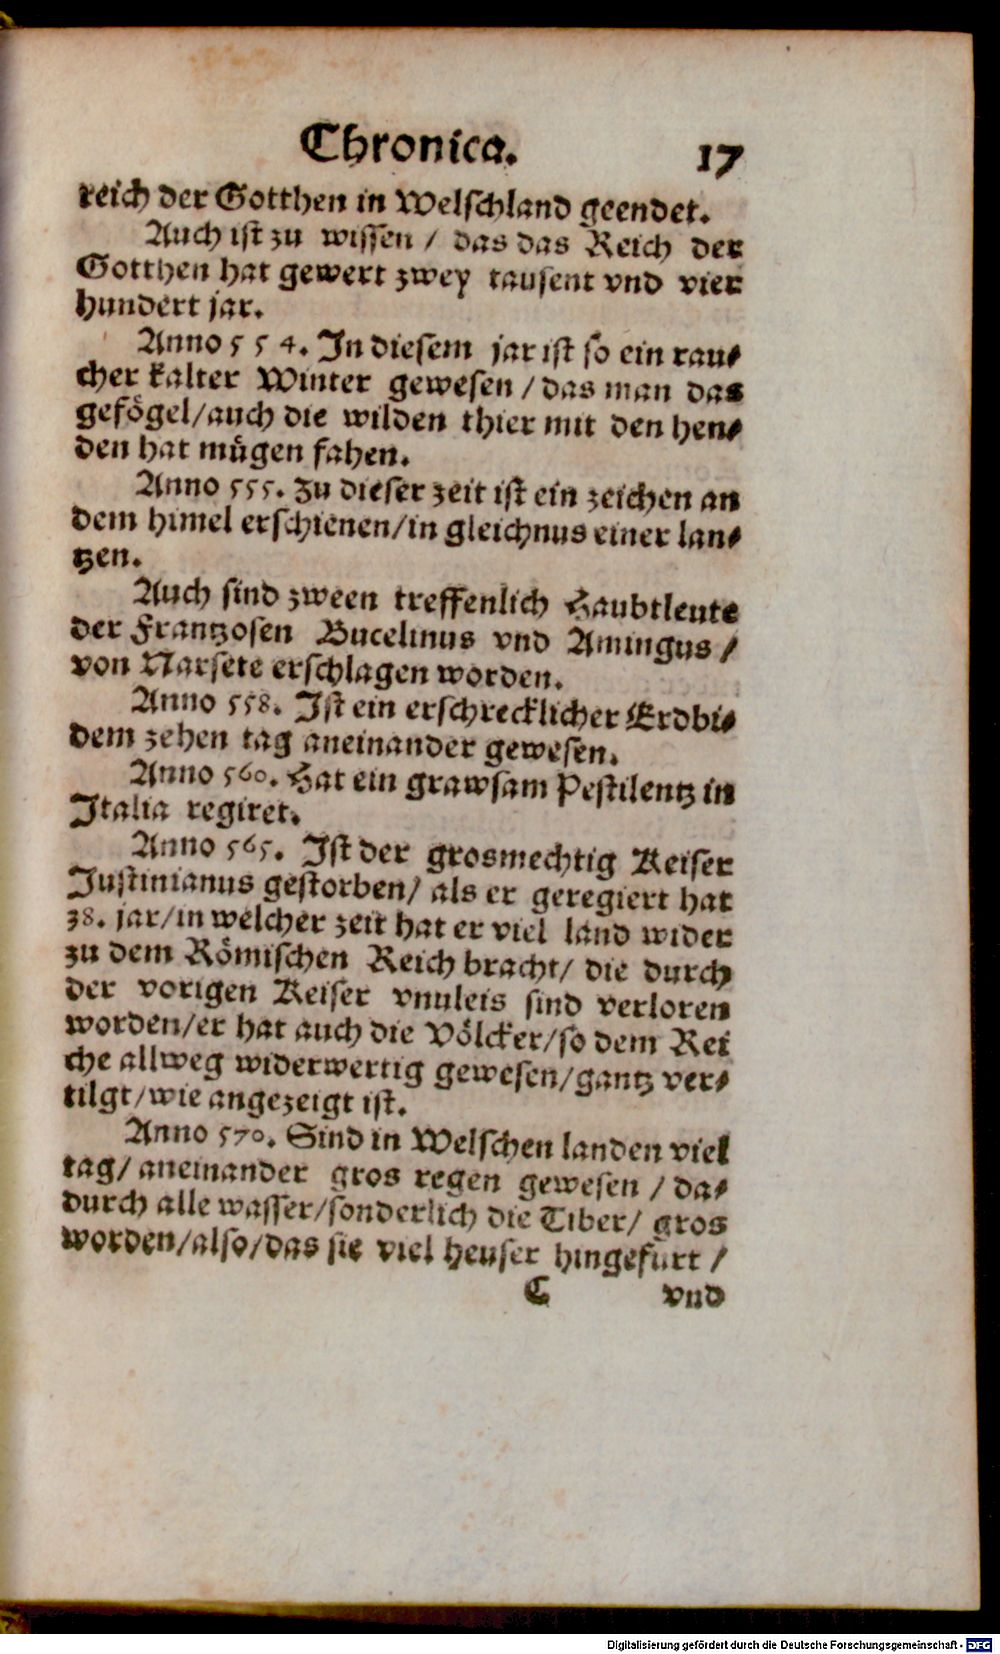 Chronica. 17
reich der Gotthen in Welschland geendet.
Auch ist zu wissen / das das Reich der
Gotthen hat gewert zwey tausent vnd vier
hundert jar.
Anno 554. In diesem jar ist so ein rau⸗
cher kalter Winter gewesen / das man das
gefögel/auch die wilden thier mit den hen⸗
den hat mügen fahen.
Anno 555. Zu dieser zeit ist ein zeichen an
dem himel erschienen/in gleichnus einer lan⸗
tzen.
Auch sind zween treffenlich Haubtleute
der Frantzosen Bucelinus vnd Amingus /
von Narsete erschlagen worden.
Anno 558. Ist ein erschrecklicher Erdbi⸗
dem zehen tag aneinander gewesen.
Anno 560. Hat ein grawsam Pestilentz in
Italia regiret.
Anno 565. Ist der grosmechtig Keiser
Justinianus gestorben/ als er geregiert hat
38. jar/in welcher zeit hat er viel land wider
zu dem Römischen Reich bracht/ die durch
der vorigen Keiser vnuleis sind verloren
worden/er hat auch die Völcker/so dem Rei
che allweg widerwertig gewesen/gantz ver⸗
tilgt/wie angezeigt ist.
Anno 570. Sind in Welschen landen viel
tag/ aneinander gros regen gewesen / da⸗
durch alle wasser/sonderlich die Tiber/ gros
worden/also/das sie viel heuser hingefürt /
C vnd
Digitalisierung gefördert durch die Deutsche Forschungsgemeinschaft - DFG